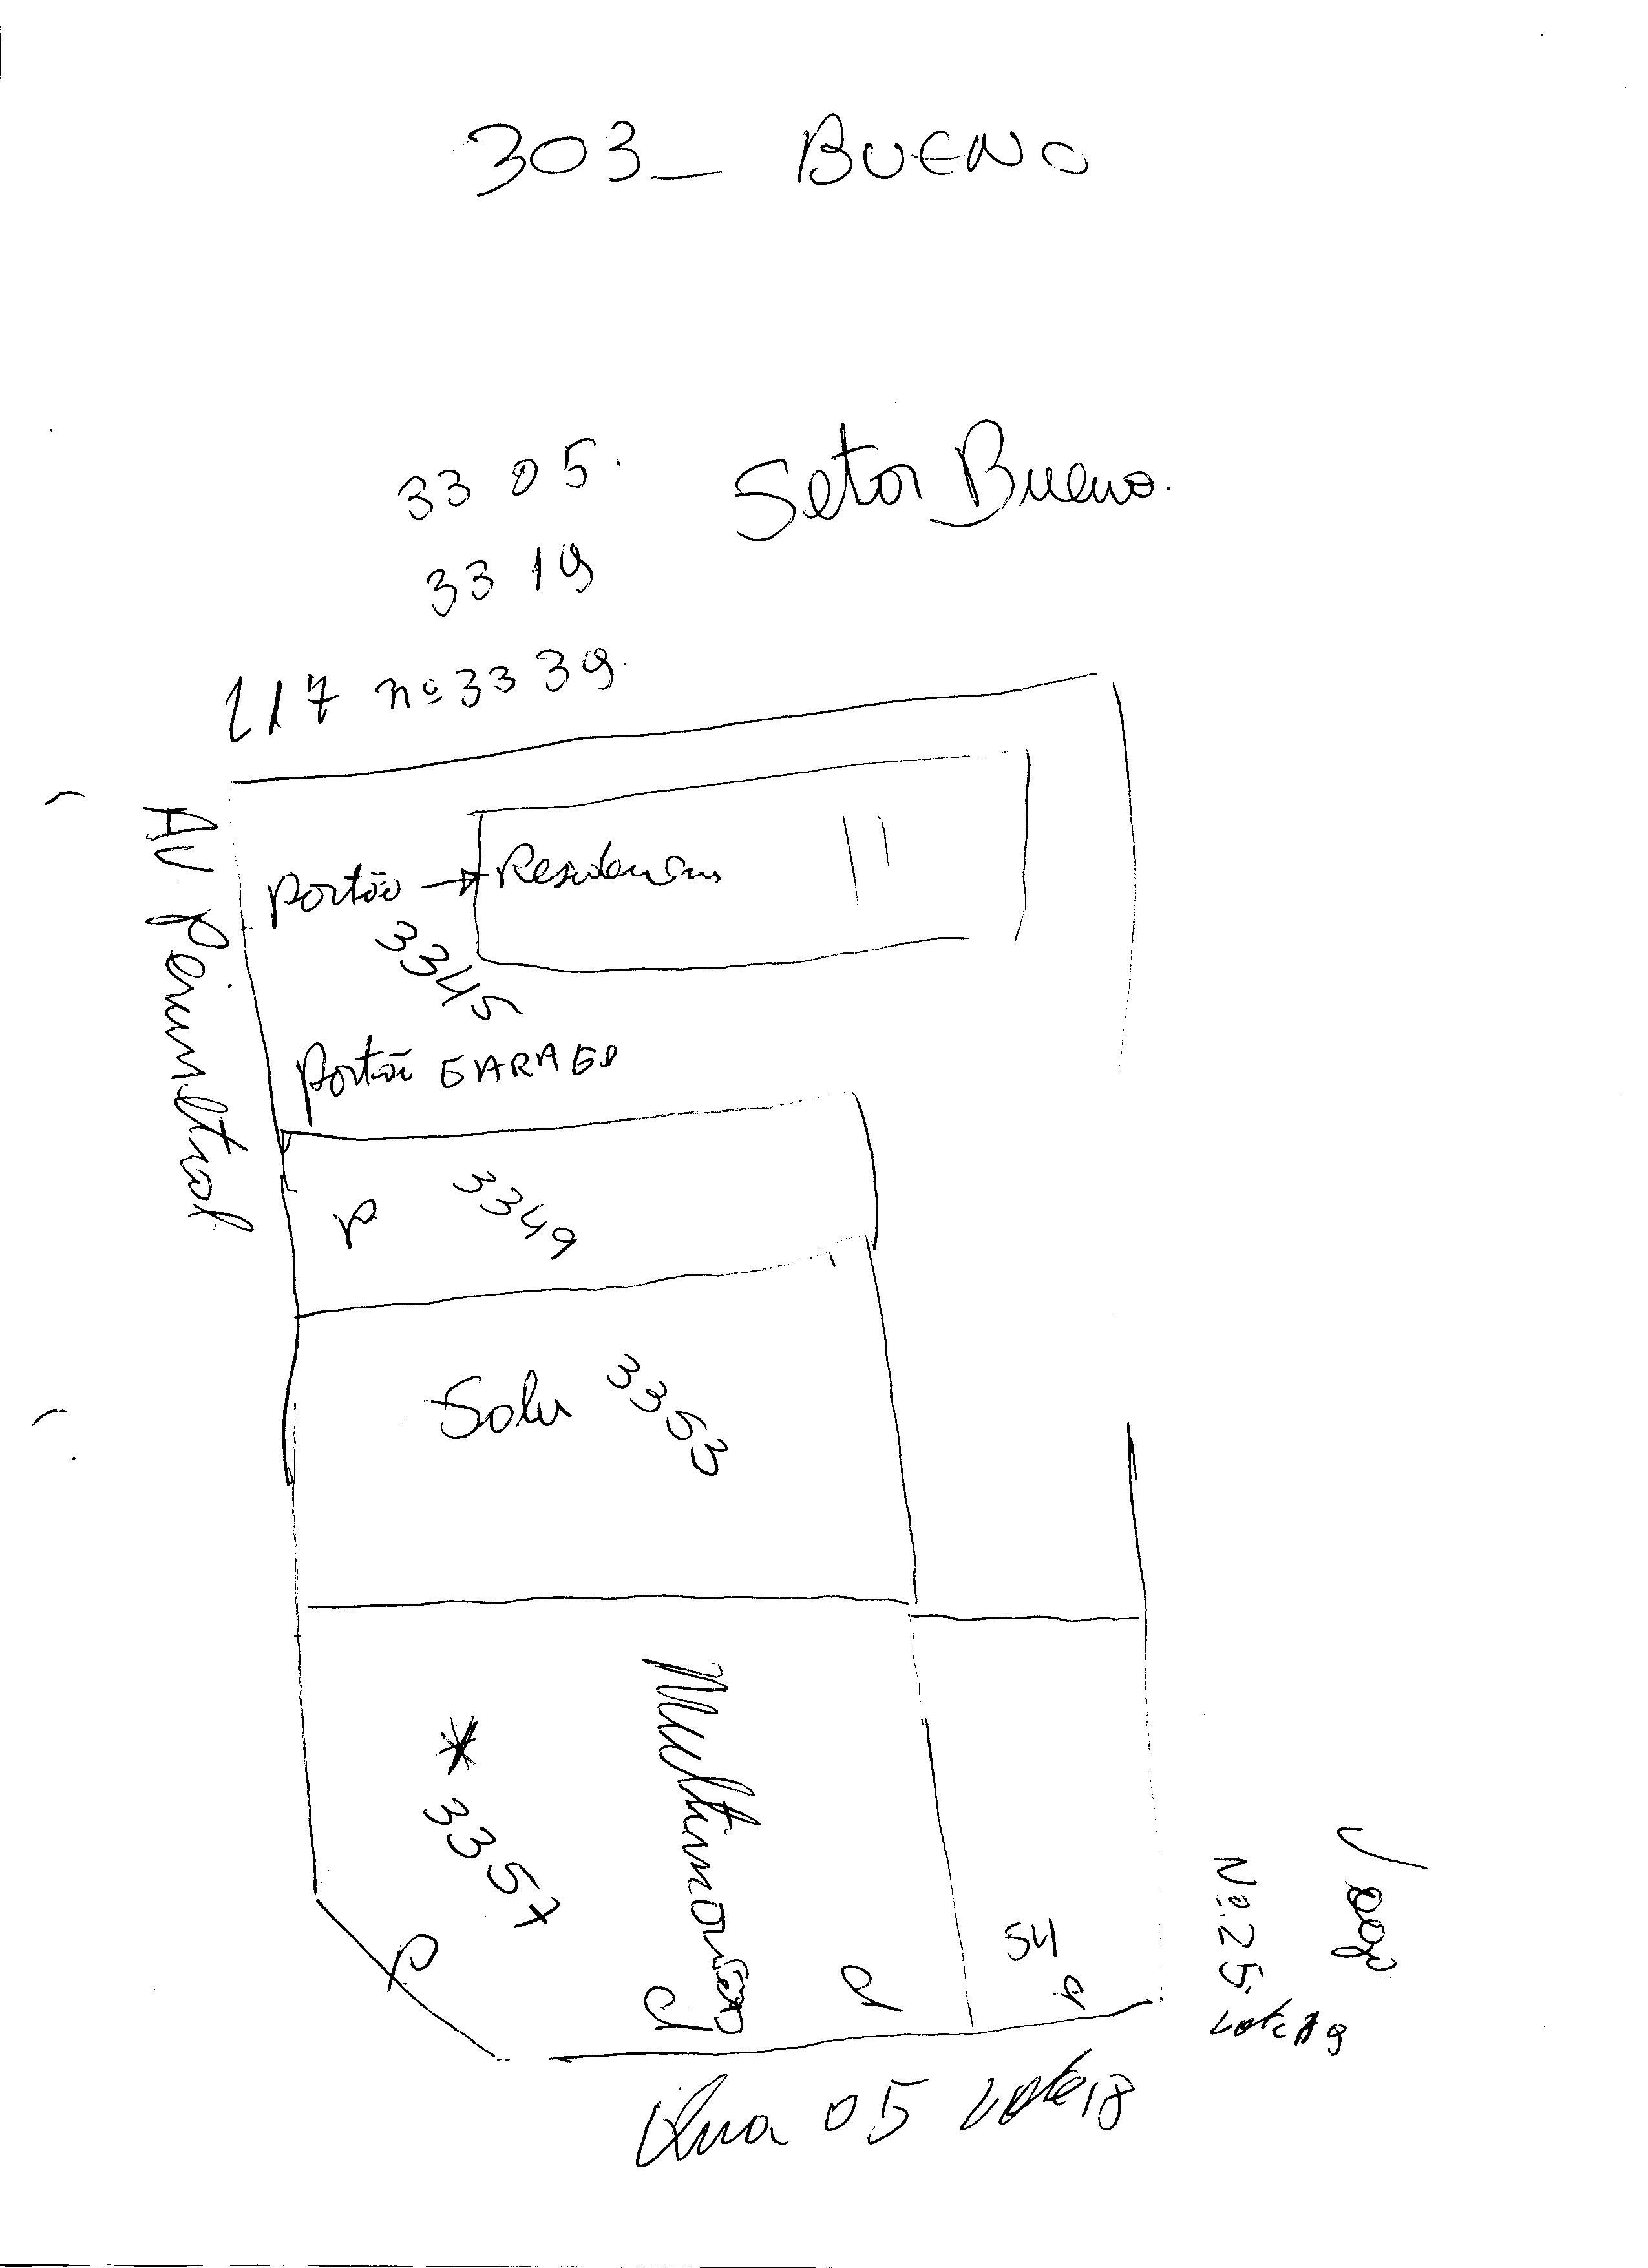 303_ BUENO
3305. Setor Bueno.
3319
L17 nº 3339.
AV Perimetral
Portão → Residencias
3345
Portão GARAGE
P 3349
Sala 3353
* 3357
P
P
P
54
P
Nº 25
Lote 19
Rua 05 Lote 18